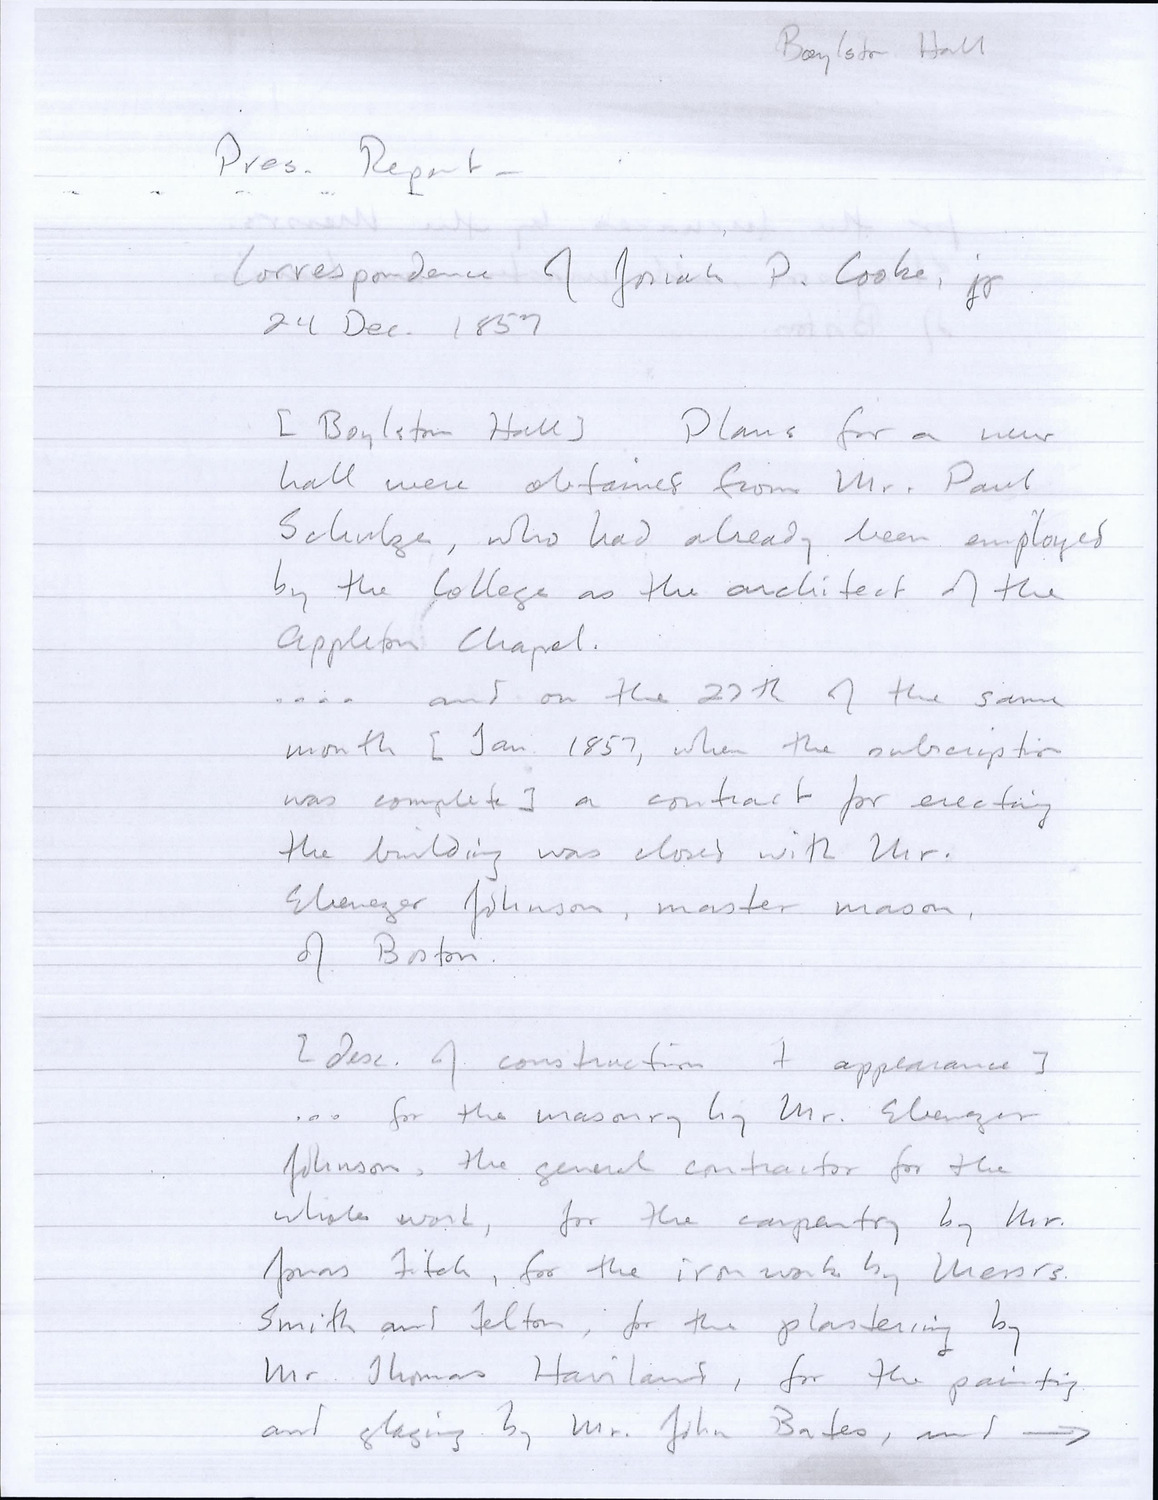 Boylston Hall
Pres. Report -
Correspondence of Josiah P. Cooke, jr
24 Dec. 1857
[ Boylston Hall ] Plans for a new
hall were obtained from Mr. Paul
Schulze, who had already been employed
by the College as the architect of the
Appleton Chapel.
.... and on the 27th of the same
month [ Jan. 1857, when the subscription
was complete ] a contract for erecting
the building was closed with Mr.
Ebenezer Johnson, master mason,
of Boston.
[ desc. of construction + appearance ]
... for the masonry by Mr. Ebenezer
Johnson, the general contractor for the
whole work, for the carpentry by Mr.
Jonas Fitch, for the iron work by Messrs.
Smith and Felton, for the plastering by
Mr. Thomas Haviland, for the painting
and glazing by Mr. John Bates, and →